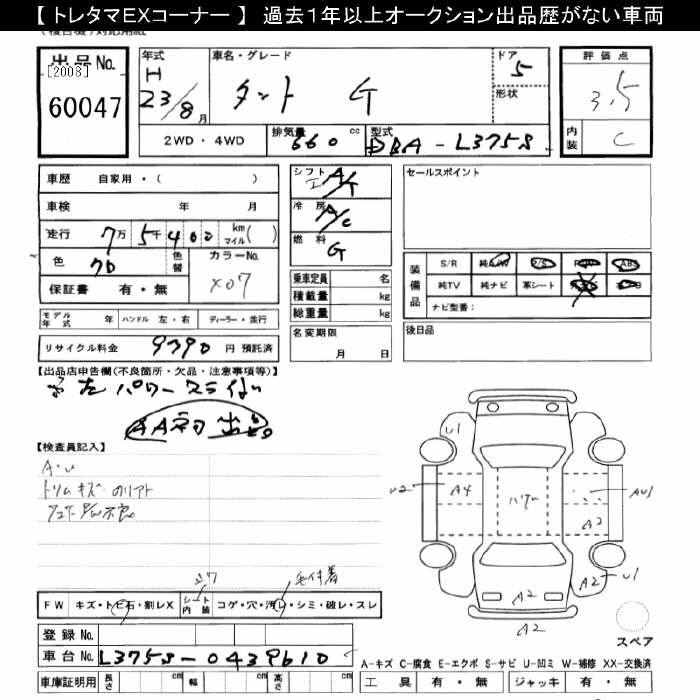 【 トレタマEXコーナー 】 過去1年以上オークション出品歴がない車両
出品No.
[2008]
60047
年式
H
23/8月
車名・グレード
タント G
ドア
5
形状
評価点
3.5
内装
C
2WD ・ 4WD
排気量
660 cc
型式
DBA - L375S
車歴 自家用・( )
車検 年 月
走行 7万 5千 400 km マイル( )
色 クロ 色替
カラーNo.
X07
保証書 有・無
モデル年式 年 ハンドル 左・右 ディーラー・並行
リサイクル料金 9390 円 預託済
シフト
A/T
冷房
A/C
燃料
G
乗車定員 名
積載量 kg
総重量 kg
名変期限
月 日
セールスポイント
装備品
S/R 純A/W P/S P/W ABS
純TV 純ナビ 革シート
ナビ型番:
後日品
【出品店申告欄(不良箇所・欠品・注意事項等)】
左パワースライド
AA初出品
【検査員記入】
A・U
トリムキズ
U1
U2
A4
A2
A2
U1
A2
A2
スペア
FW キズ・トビ石・割レX
シート内装 コゲ・穴・汚レ・シミ・破レ・スレ
毛付着
登録 No.
車台 No. L375S-0439610
車庫証明用 長さ cm 幅 cm 高さ cm
A-キズ C-腐食 E-エクボ S-サビ U-凹ミ W-補修 XX-交換済
工具 有・無 ジャッキ 有・無